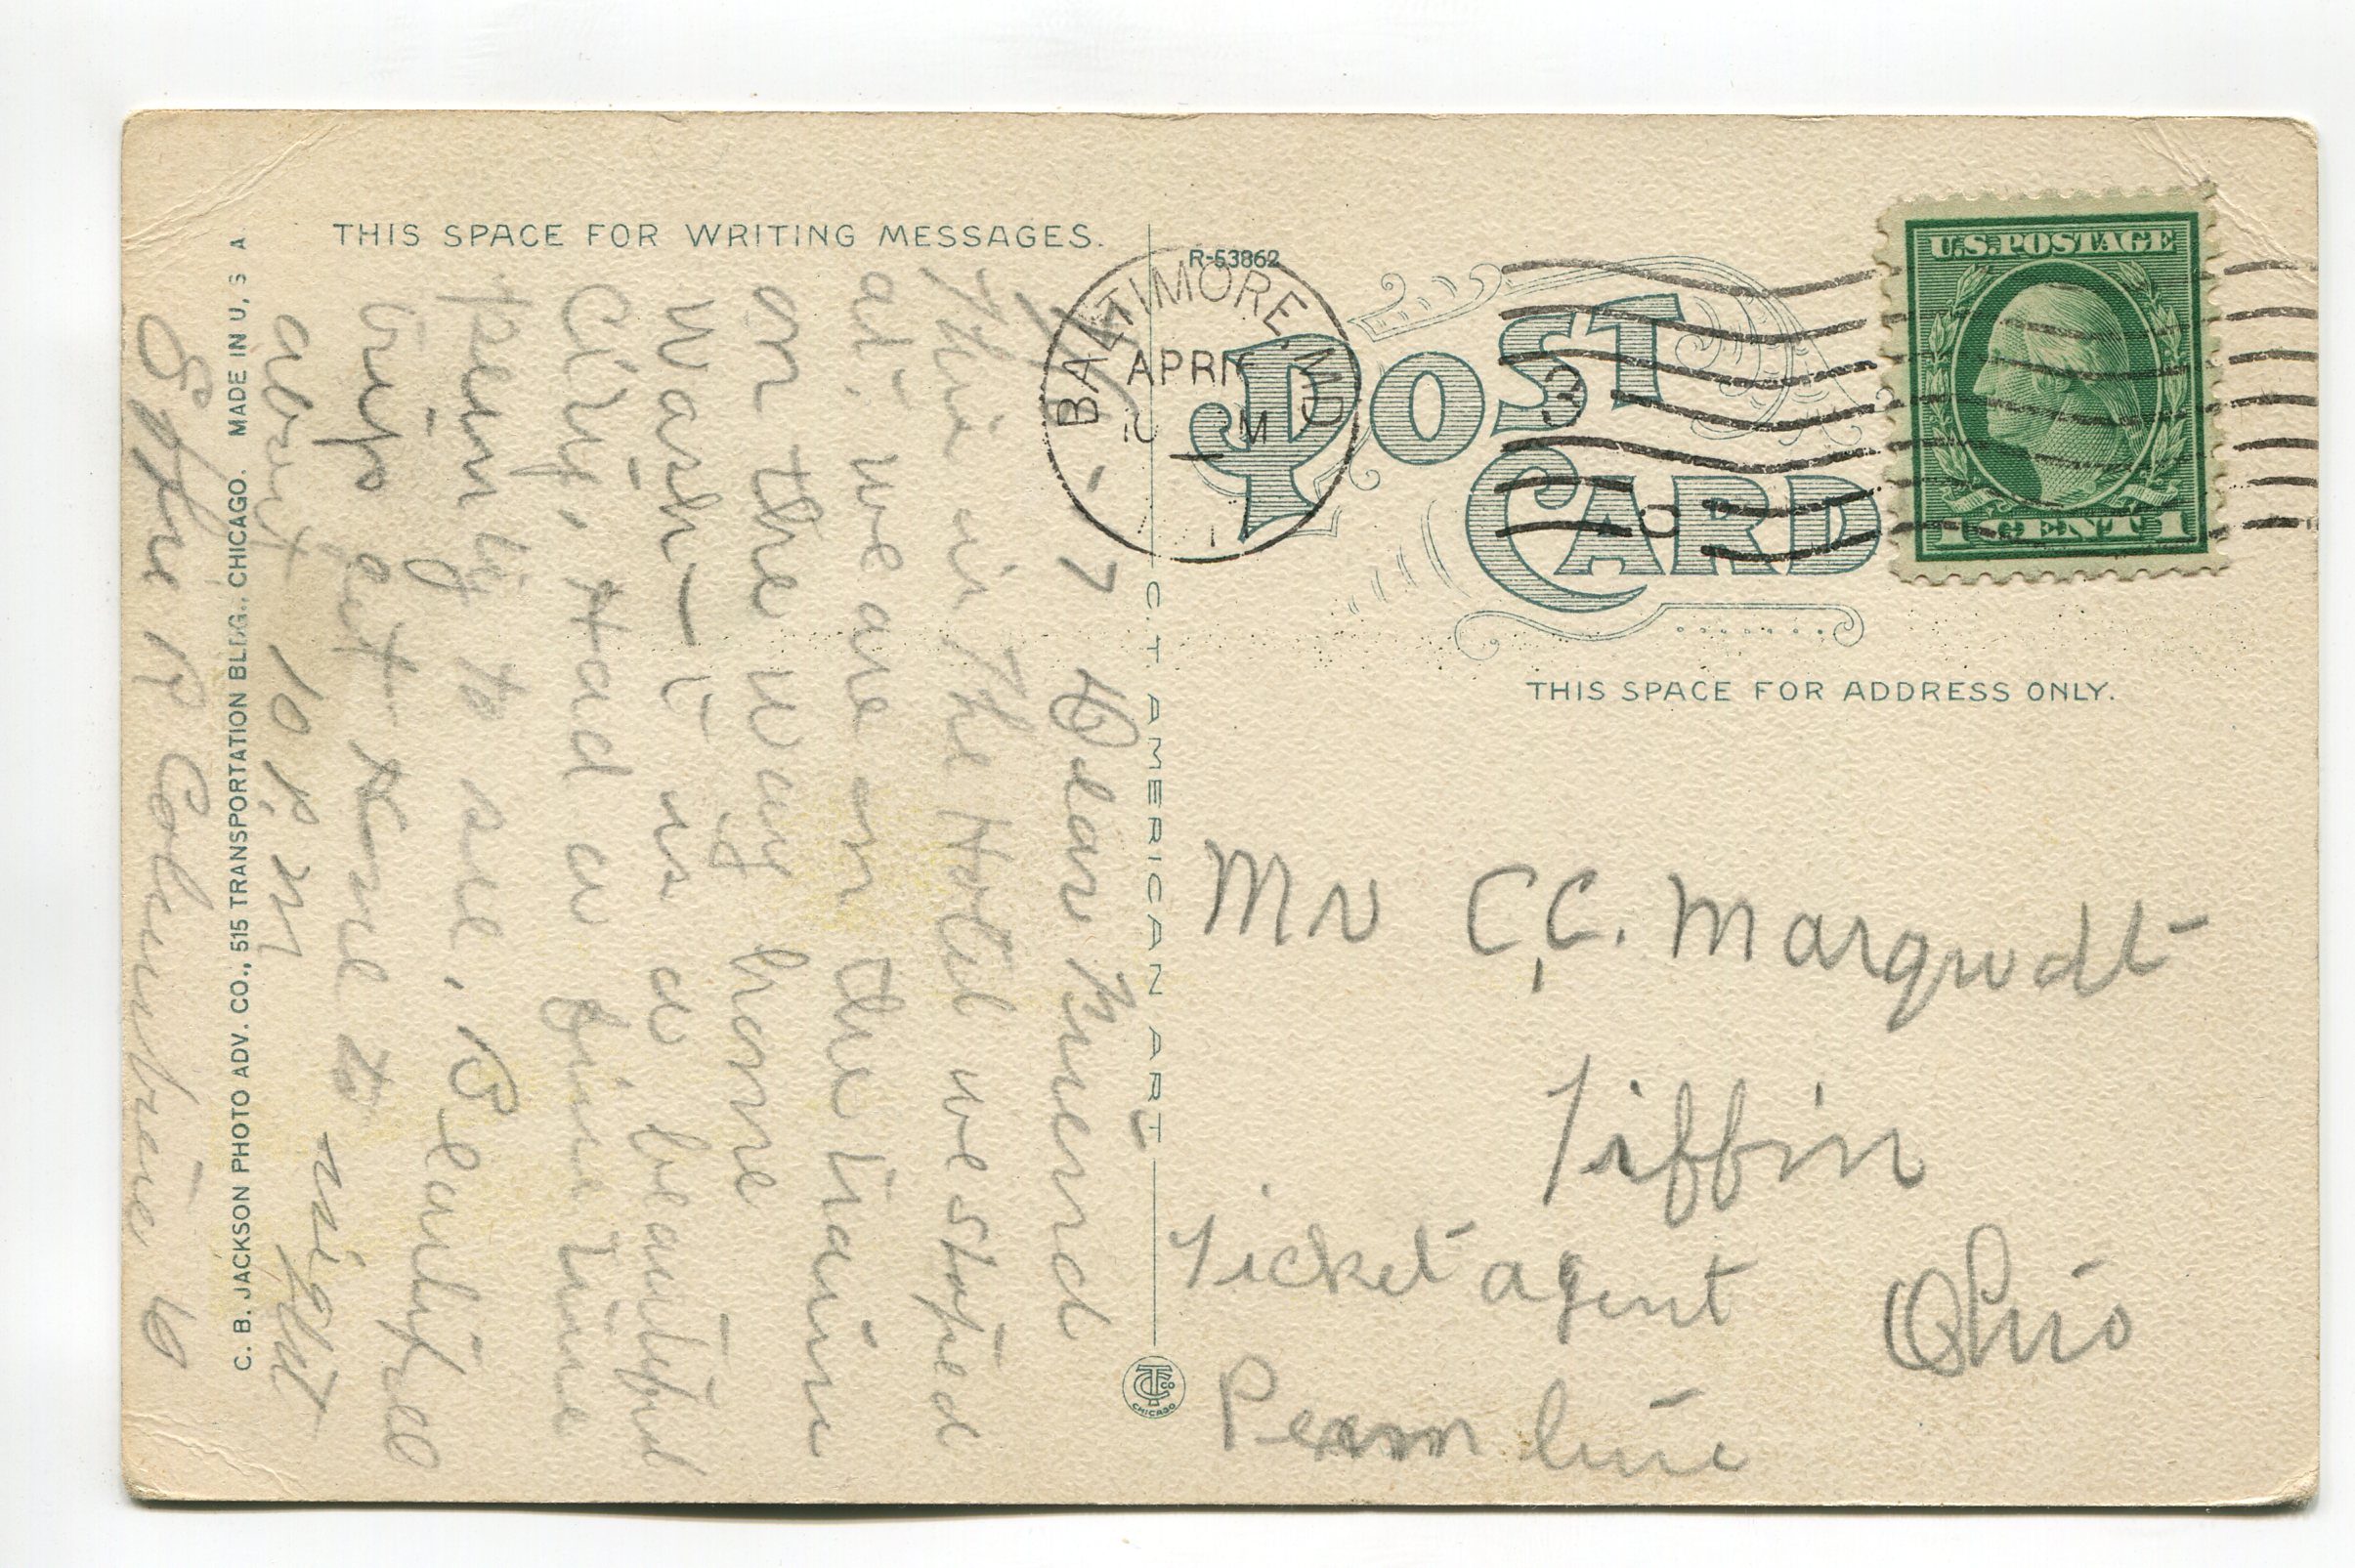 THIS SPACE FOR WRITING MESSAGES.
Dear Friend
This is the Hotel we stoped
at. we are on the train
on the way home
Wash— it is a beautiful
City, Had a fine time
to see, Beautiful
trip get home to night
about 10 P. M
C. B. JACKSON PHOTO ADV. CO., 515 TRANSPORTATION BLDG., CHICAGO. MADE IN U, S A
C. T. AMERICAN ART
CT CO
CHICAGO
R-53862
BALTIMORE, MD
APR
M
POST
CARD
U.S. POSTAGE
1 CENT 1
THIS SPACE FOR ADDRESS ONLY.
Mr C,C. Marqudt
Tiffin
Ohio
Ticket agent
Penn line